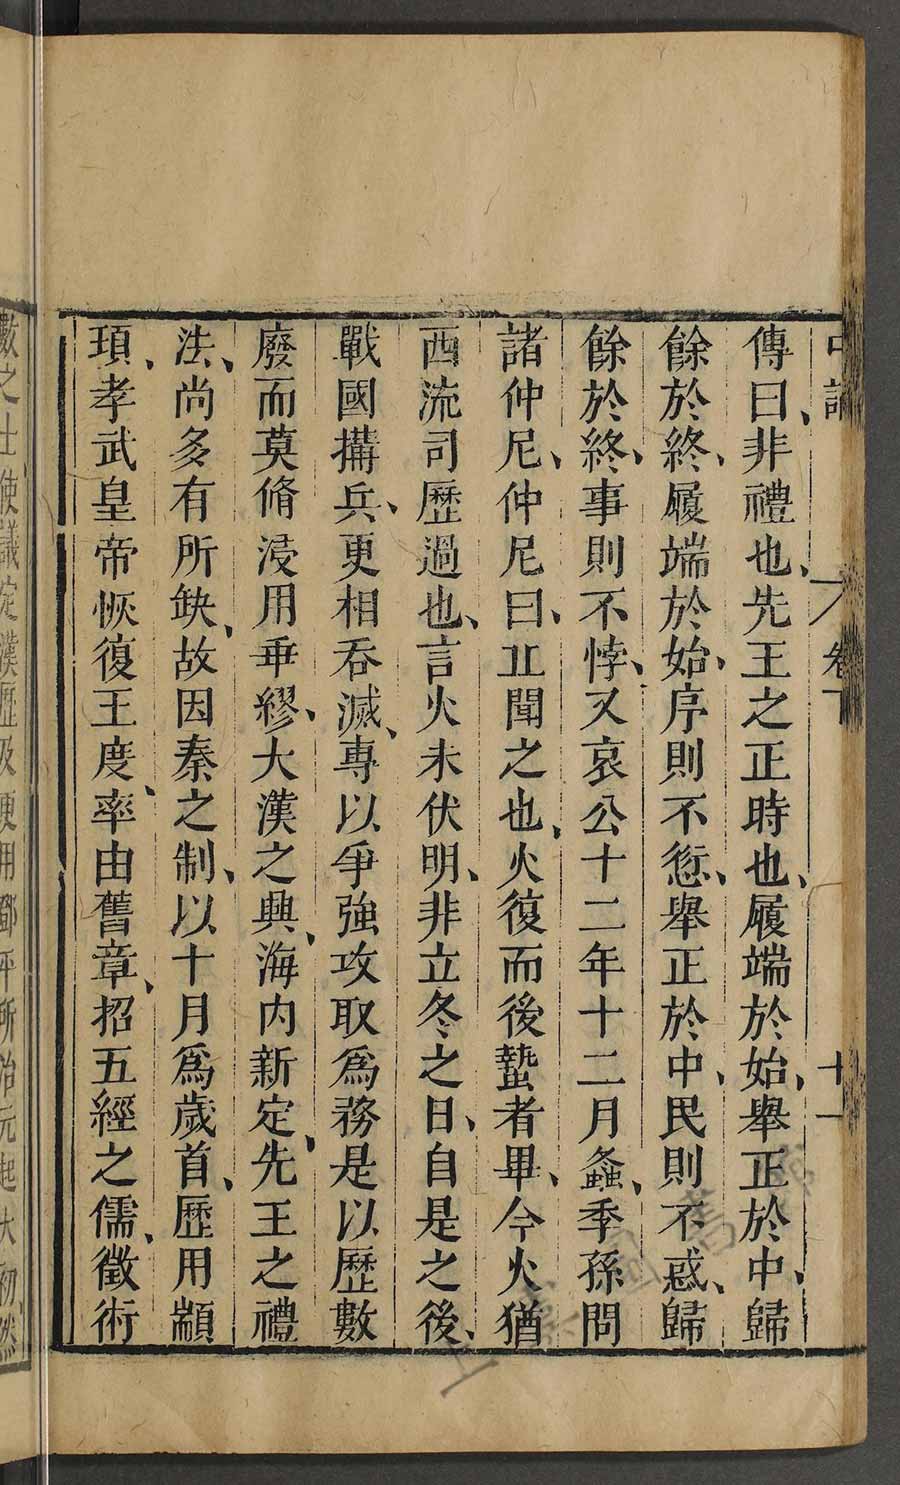 中論
卷下
十一
傳曰、非禮也、先王之正時也、履端於始、舉正於中、歸
餘於終、履端於始、序則不愆、舉正於中、民則不惑、歸
餘於終、事則不悖、又哀公十二年十二月螽、季孫問
諸仲尼、仲尼曰、丘聞之也、火復而後蟄者畢、今火猶
西流司歷過也、言火未伏明、非立冬之日、自是之後、
戰國搆兵、更相吞滅、專以爭強攻取爲務是以歷數
廢而莫脩浸用乖繆、大漢之興、海內新定、先王之禮
法、尚多有所缺、故因秦之制、以十月爲歲首、歷用顓
頊、孝武皇帝恢復王度、率由舊章、招五經之儒、徵術
數之士使議定漢歷及更用鄧平所治元起太初、然